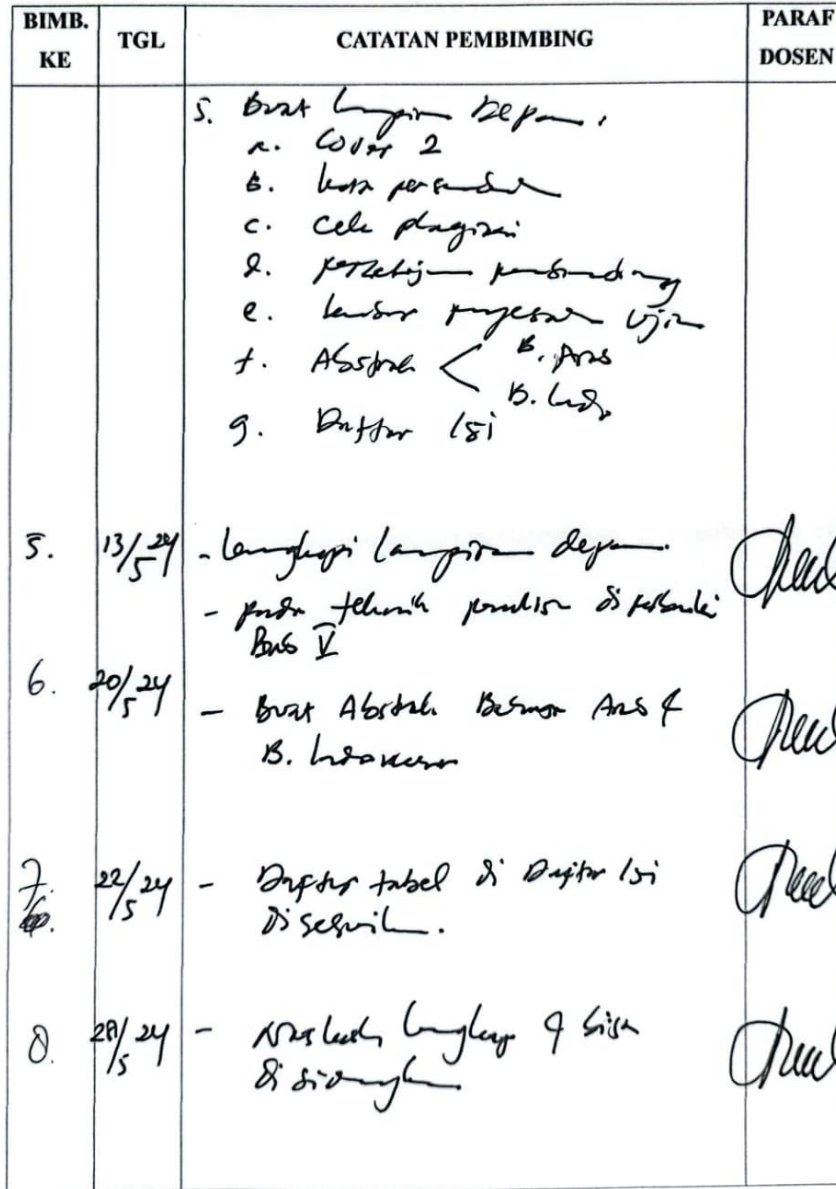 BIMB. KE TGL CATATAN PEMBIMBING PARAF DOSEN
5. Buat lampiran Depan.
a. Cover 2
b. kata
c. cek plagiasi
d. persetujuan pembimbing
e. lembar ujian
f. Abstrak < B. Arab
B. Indo
g. Daftar Isi
5. 13/5 24 - Lengkapi lampiran depan.
- pada tehnik penulisan di perbaiki
Bab V
6. 20/5 24 - Buat Abstrak Bahasa Arab &
B. Indonesia
7. 22/5 24 - Daftar tabel di Daftar Isi
Disesuaikan.
8. 28/5 24 - Naskah lengkap & bisa
di sidangkan